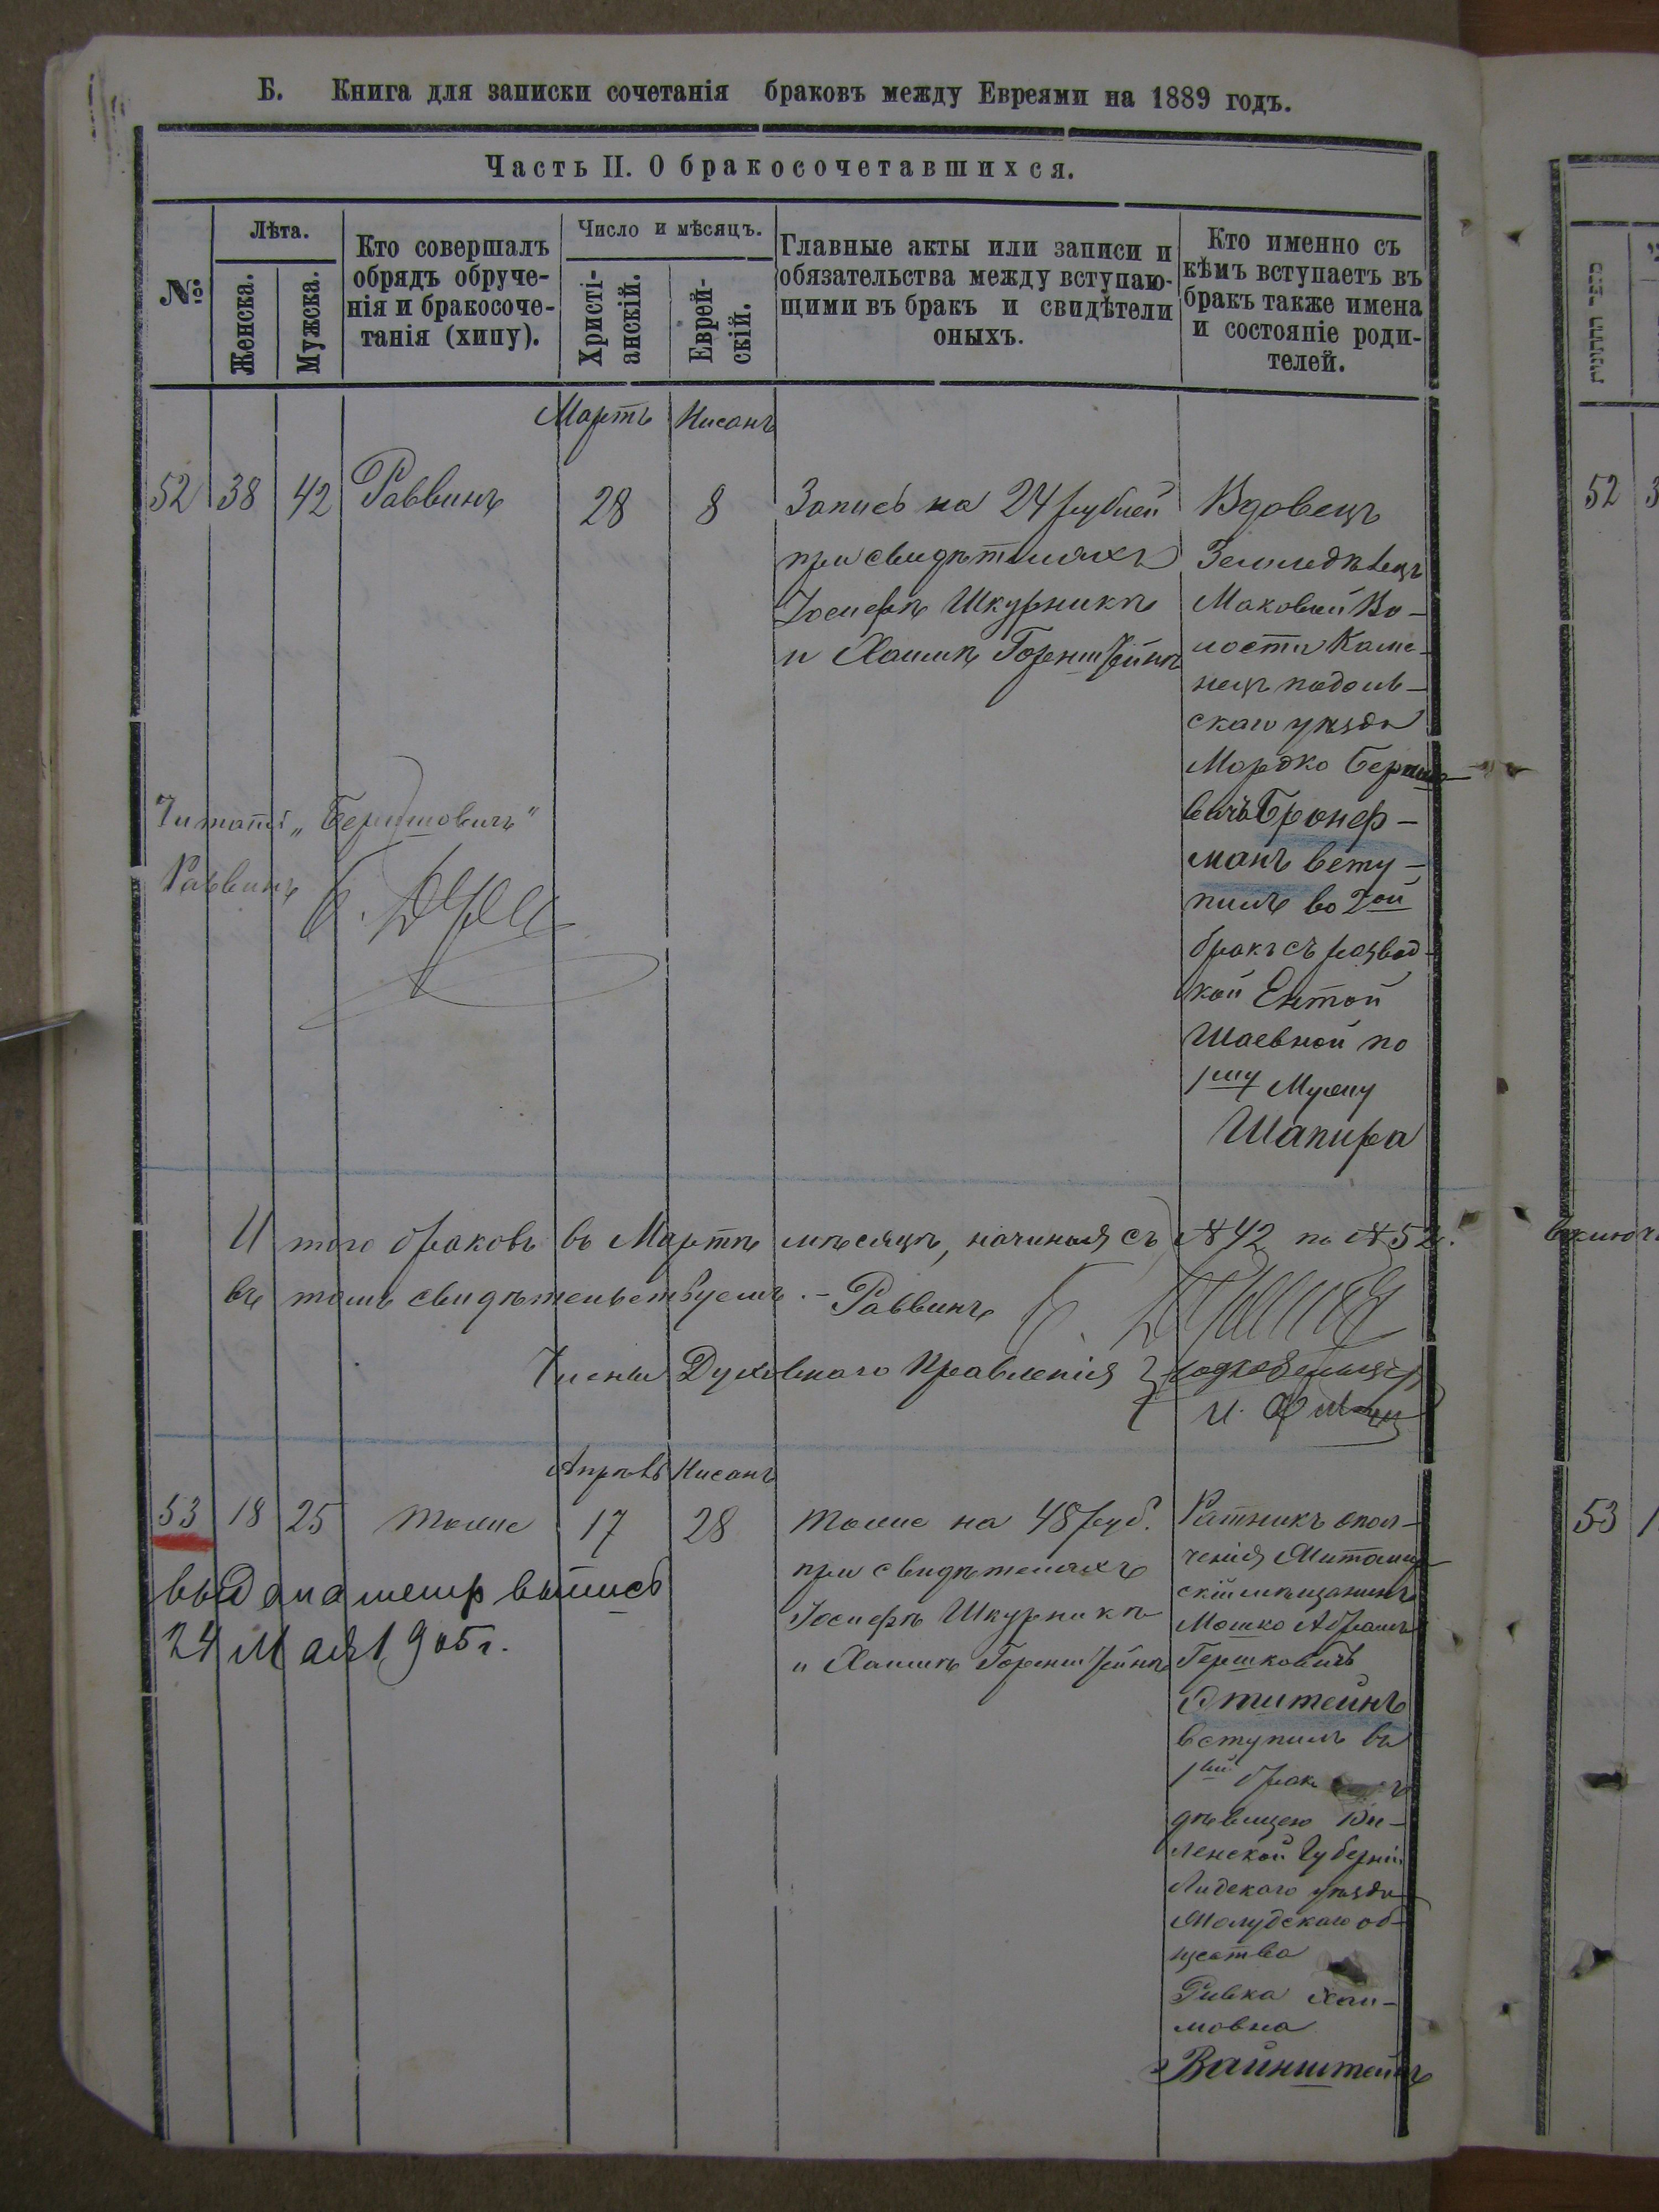 Б. Книга для записки сочетанія браковъ между Евреями на 1889 годъ.
Часть II. О бракосочетавшихся.
№
Лѣта.
Женска.
Мужска.
Кто совершалъ
обрядъ обруче-
нія и бракосоче-
танія (хипу).
Число и мѣсяцъ.
Христі-
анскій.
Еврей-
скій.
Главные акты или записи и
обязательства между вступаю-
щими въ бракъ и свидѣтели
оныхъ.
Кто именно съ
кѣмъ вступаетъ въ
бракъ также имена
и состояніе роди-
телей.
Мартъ Нисанъ
52 38 42 Раввинъ 28 8
Запись на 24 рублей
при свидѣтеляхъ
Іосифѣ Шкурникѣ
и Хаимѣ Горенштейнѣ
Вдовецъ
Земледѣлецъ
Маковской Во-
лости Каме-
нецъ подоль-
скаго уѣзда
Мордко Бершко-
вичъ Бронф-
манъ всту-
пилъ во 2ой
бракъ съ развод-
кой Ентой
Шаевной по
1му Мужу
Шапира
Читать „Бершовичъ"
Раввинъ
Итого браковъ въ Мартѣ мѣсяцѣ, начиная съ №42 по №52. включи
въ томъ свидѣтельствуемъ.– Раввинъ
Члены Духовнаго Правленія
Апрѣль Нисанъ
53 18 25 тоже 17 28
тоже на 48 руб.
при свидѣтеляхъ
Іосифѣ Шкурникѣ
и Хаимѣ Горенштейнѣ
Ратникъ опол-
ченія Житомир-
скій мѣщанинъ
Мошко Абрамъ
Гершковичъ
вступилъ въ
1ый бракъ съ
дѣвицею Ви-
ленской Губерніи
Лидскаго уѣзда
Жолудскаго об-
щества
Ривка Хаи-
мовна
Вайнштейнъ
выдана метр выпись
24 Мая 1905 г.
52 3
53 1